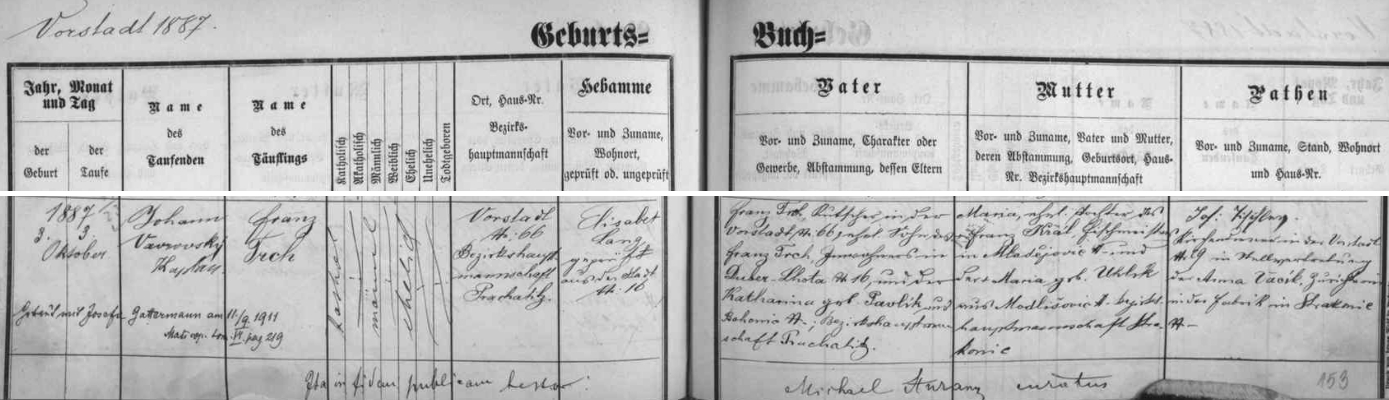 Vorstadt 1887.
Geburts=
Buch=
Jahr, Monat und Tag
der Geburt
der Taufe
Name des Taufenden
Name des Täuflings
Katholisch
Akatholisch
Männlich
Weiblich
Ehelich
Unehelich
Todtgeboren
Ort, Haus-Nr.
Bezirks-
hauptmannschaft
Hebamme
Vor- und Zuname,
Wohnort,
geprüft od. ungeprüft
Vater
Vor- und Zuname, Charakter oder
Gewerbe, Abstammung, dessen Eltern
Mutter
Vor- und Zuname, Vater und Mutter,
deren Abstammung, Geburtsort, Haus-
Nr. Bezirkshauptmannschaft
Pathen
Vor- und Zuname, Stand, Wohnort
und Haus-Nr.
1887
3. 3.
Oktober
Johann
Vavrovský
Kaplan
Franz
Trch
kathol
männl
ehelich
Vorstadt
N: 66
Bezirkshaupt
mannschaft
Prachatitz.
Elisabet
Lang
geprüft
aus der Stadt
N: 16
Franz Trch, Kutscher in der
Vorstadt N 66, ehel. Sohn des
Franz Trch, Inwohners in
Lhota N 16, und der
Katharina geb. Pavlik und
Bezirkshauptmann
schaft Prachatitz.
Maria, ehel. Tochter des
Franz Král,
in und
der Maria geb.
aus Bezirks
hauptmannschaft Stra
konic
Joh:
Kirchendiener in der Vorstadt
N 19 in Stellvertretung
der Anna
in der Fabrik in Strakonic
N
Getraut mit Josefa Gattermann am 11/9 1911
pag 219
Ita in fidem publicam testor:
Michael curatus
153